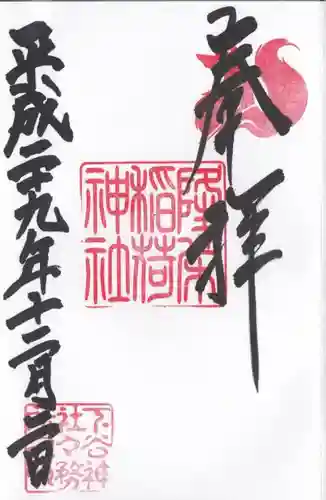 奉拝
隆栄
稲荷
神社
平成二十九年十二月二日
下谷神
社々務